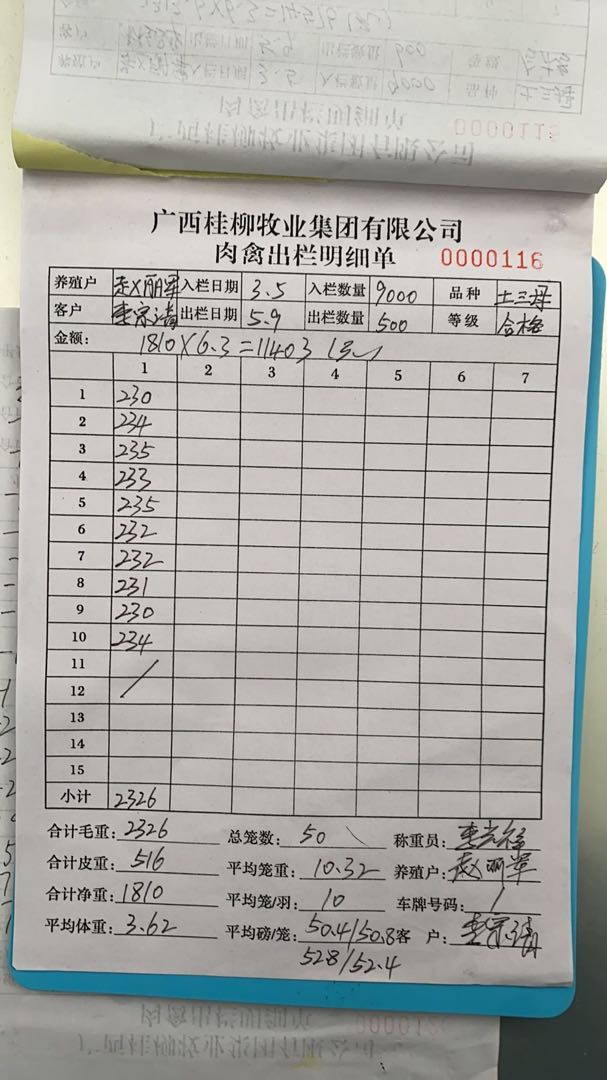 广西桂柳牧业集团有限公司
肉禽出栏明细单 0000116
养殖户 赵丽军 入栏日期 3.5 入栏数量 9000 品种 土三丹
客户 李宗清 出栏日期 5.9 出栏数量 500 等级 合格
金额: 1810×6.3=11403
1 2 3 4 5 6 7
1 230
2 234
3 235
4 233
5 235
6 232
7 232
8 231
9 230
10 234
11
12
13
14
15
小计 2326
合计毛重: 2326 总笼数: 50 称重员:
合计皮重: 516 平均笼重: 10.32 养殖户: 赵丽军
合计净重: 1810 平均笼/羽: 10 车牌号码: /
平均体重: 3.62 平均磅/笼: 50.4/50.8 客 户: 李宗清
528/52.4